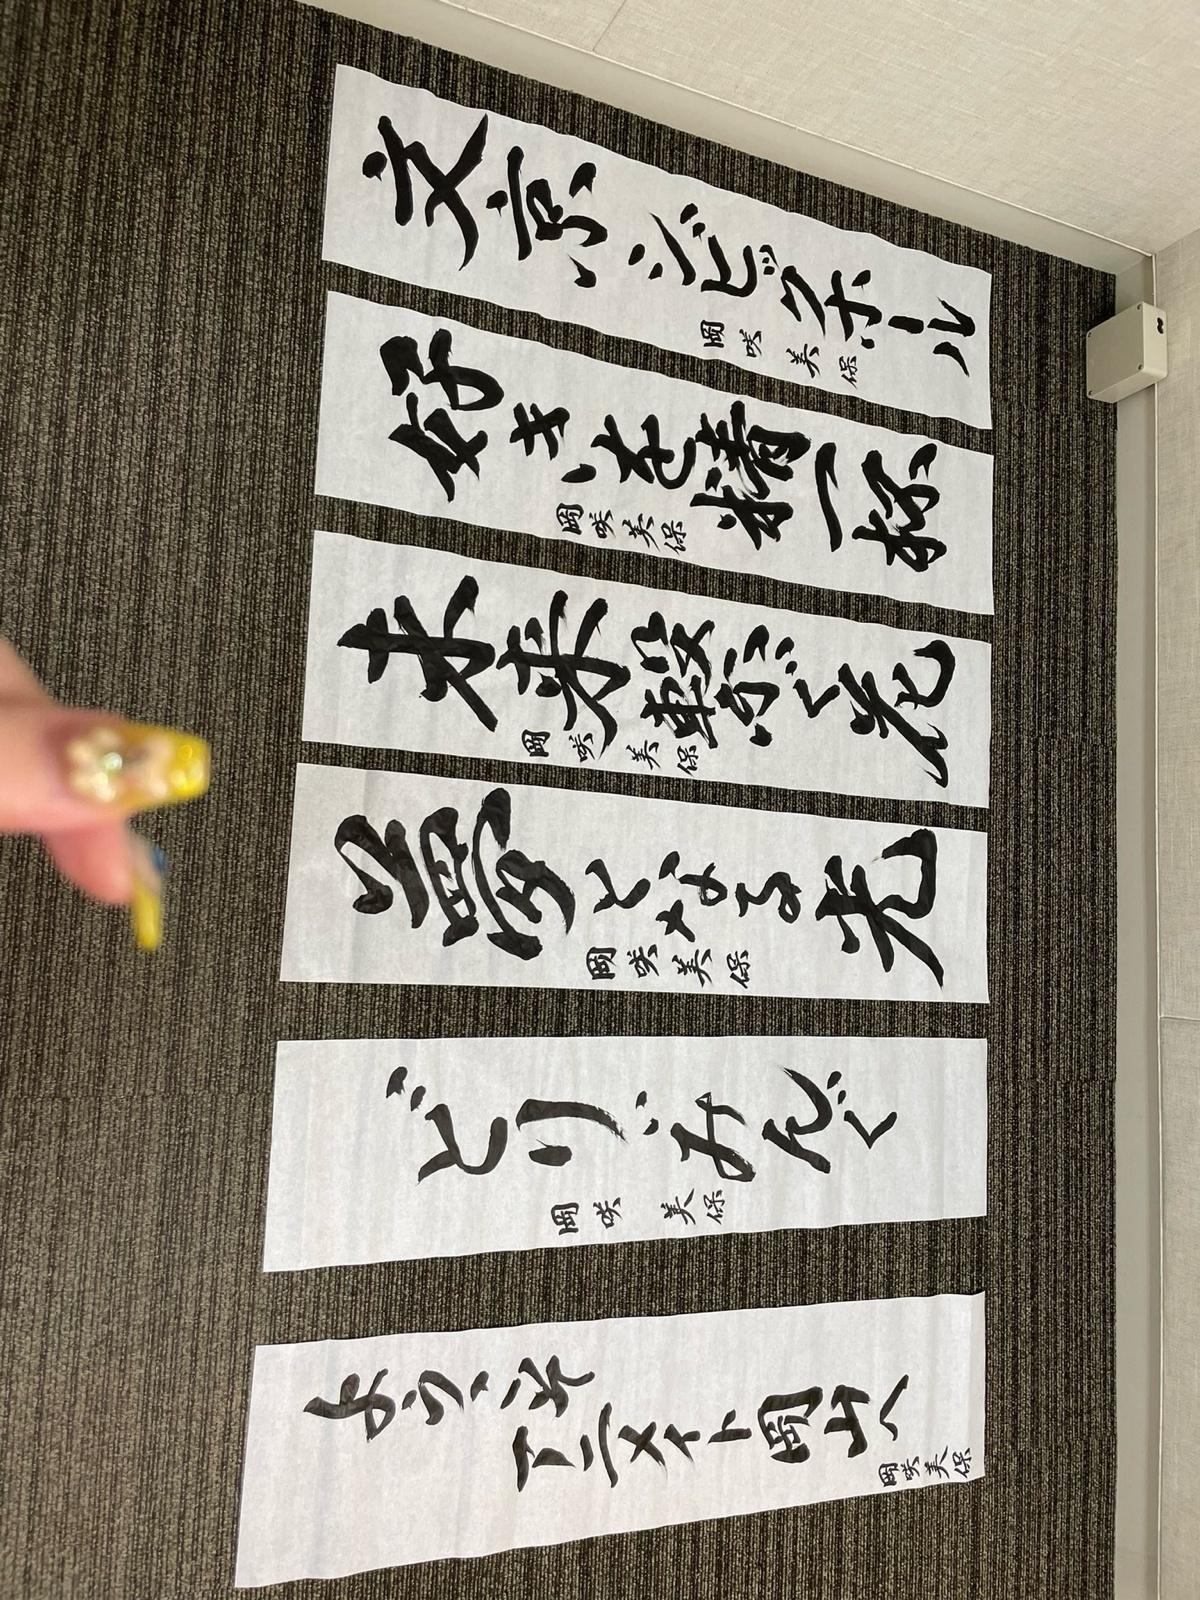 文京シビックホール
岡咲美保
好きを精一杯
岡咲美保
未来繋ぐ花
岡咲美保
夢となる光
岡咲美保
どりぃみんぐ
岡咲美保
ようこそ
アニメイト岡山へ
岡咲美保